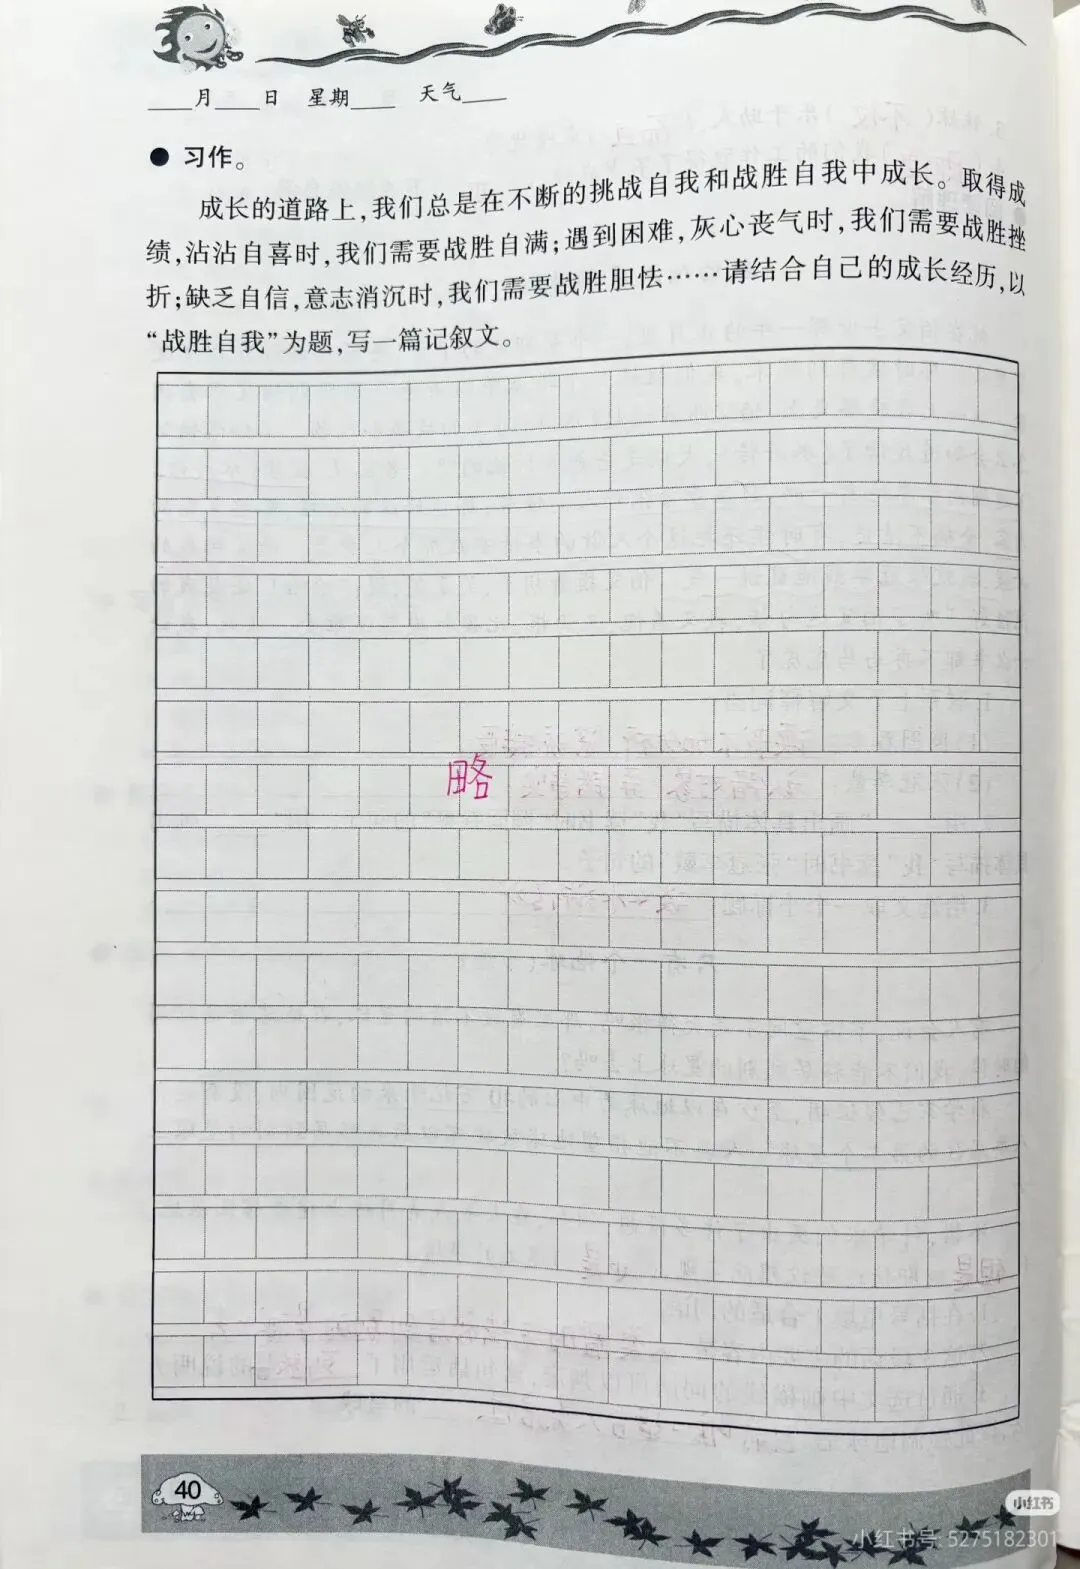 ____月____日 星期____ 天气____
● 习作。
成长的道路上,我们总是在不断的挑战自我和战胜自我中成长。取得成
绩,沾沾自喜时,我们需要战胜自满;遇到困难,灰心丧气时,我们需要战胜挫
折;缺乏自信,意志消沉时,我们需要战胜胆怯……请结合自己的成长经历,以
“战胜自我”为题,写一篇记叙文。
略
40
小红书
小红书号: 5275182301